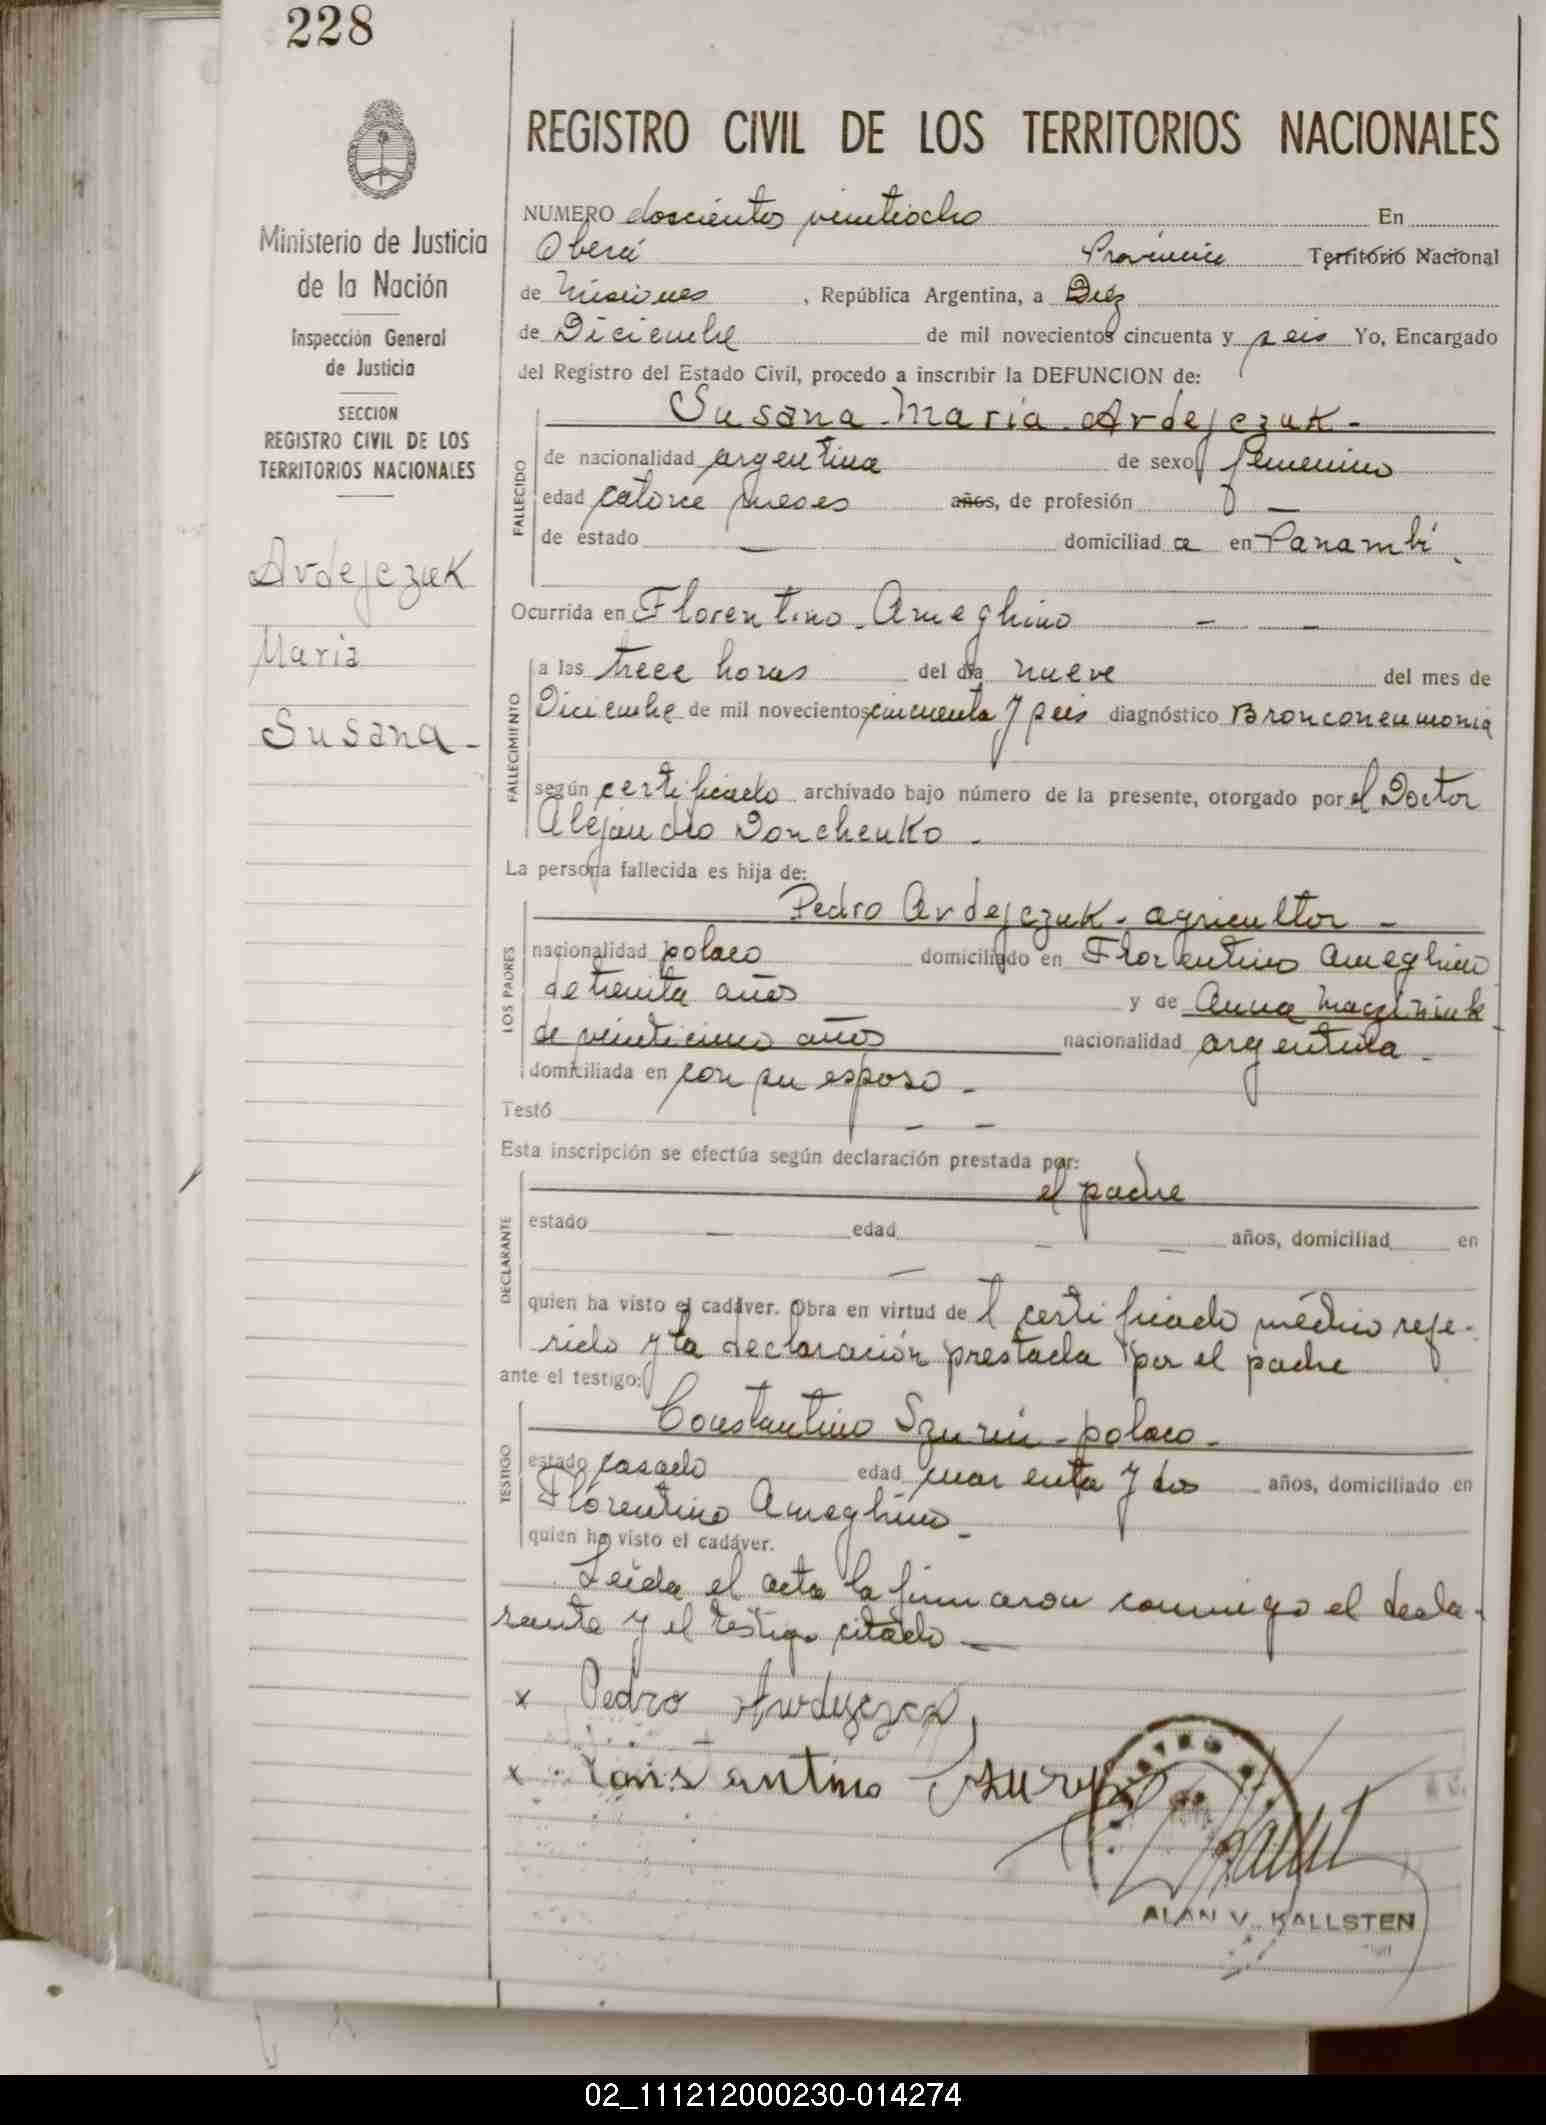 228
REGISTRO CIVIL DE LOS TERRITORIOS NACIONALES
Ministerio de Justicia
de la Nación
Inspección General
de Justicia
SECCION
REGISTRO CIVIL DE LOS
TERRITORIOS NACIONALES
Ardejczuk
Maria
Susana -
NUMERO doscientos veintiocho En
Oberá Provincia Territorio Nacional
de Misiones , República Argentina, a Diez
de Diciembre de mil novecientos cincuenta y seis Yo, Encargado
del Registro del Estado Civil, procedo a inscribir la DEFUNCION de:
Susana Maria Ardejczuk -
FALLECIDO
de nacionalidad argentina de sexo femenino
edad catorce meses años, de profesión —
de estado — domiciliada en Panambí.
Ocurrida en Florentino Ameghino — —
FALLECIMIENTO
a las trece horas del día nueve del mes de
Diciembre de mil novecientos cincuenta y seis diagnóstico Bronconeumonia
según certificado archivado bajo número de la presente, otorgado por el Doctor
Alejandro Donchenko -
La persona fallecida es hija de:
Pedro Ardejczuk - agricultor -
LOS PADRES
nacionalidad polaco domiciliado en Florentino Ameghino
de treinta años y de Anna
de veinticinco años nacionalidad argentina -
domiciliada en con su esposo -
Testó — —
Esta inscripción se efectúa según declaración prestada por:
el padre
DECLARANTE
estado — edad — — años, domiciliad en
—
quien ha visto el cadáver. Obra en virtud del certificado médico refe-
rido y la declaración prestada por el padre
ante el testigo:
Constantino Szurin - polaco -
TESTIGO
estado casado edad cuarenta y dos años, domiciliado en
Florentino Ameghino -
quien ha visto el cadáver.
Leída el acta la firmaron conmigo el decla-
rante y el testigo citado —
x Pedro
x Constantino
ALAN V. KALLSTEN
02_111212000230-014274